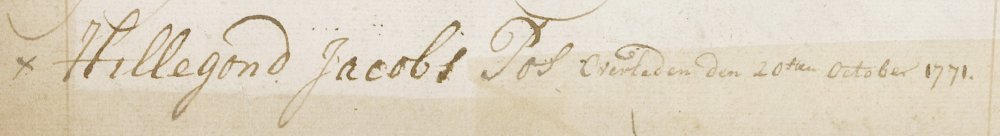 × Hillegond Jacobs Pos Overleden den 20sten October 1771.